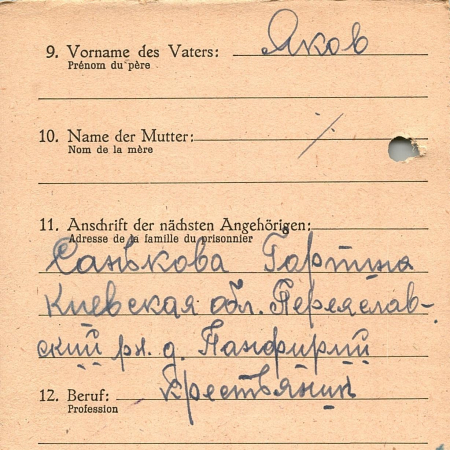 9. Vorname des Vaters: Яков
Prénom du père
10. Name der Mutter: ⁒
Nom de la mère
11. Anschrift der nächsten Angehörigen:
Adresse de la famille du prisonnier
Санькова Гартина
Киевская обл. Переяслав-
ский рн. д. Панфирий
12. Beruf: Крестьянин
Profession